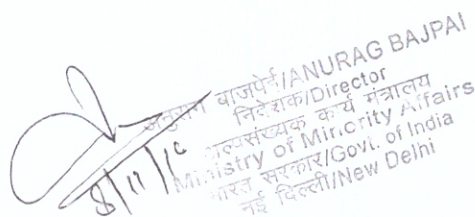 अनुराग बाजपेई/ANURAG BAJPAI
निदेशक/Director
अल्पसंख्यक कार्य मंत्रालय
Ministry of Minority Affairs
भारत सरकार/Govt. of India
नई दिल्ली/New Delhi
8/11/16